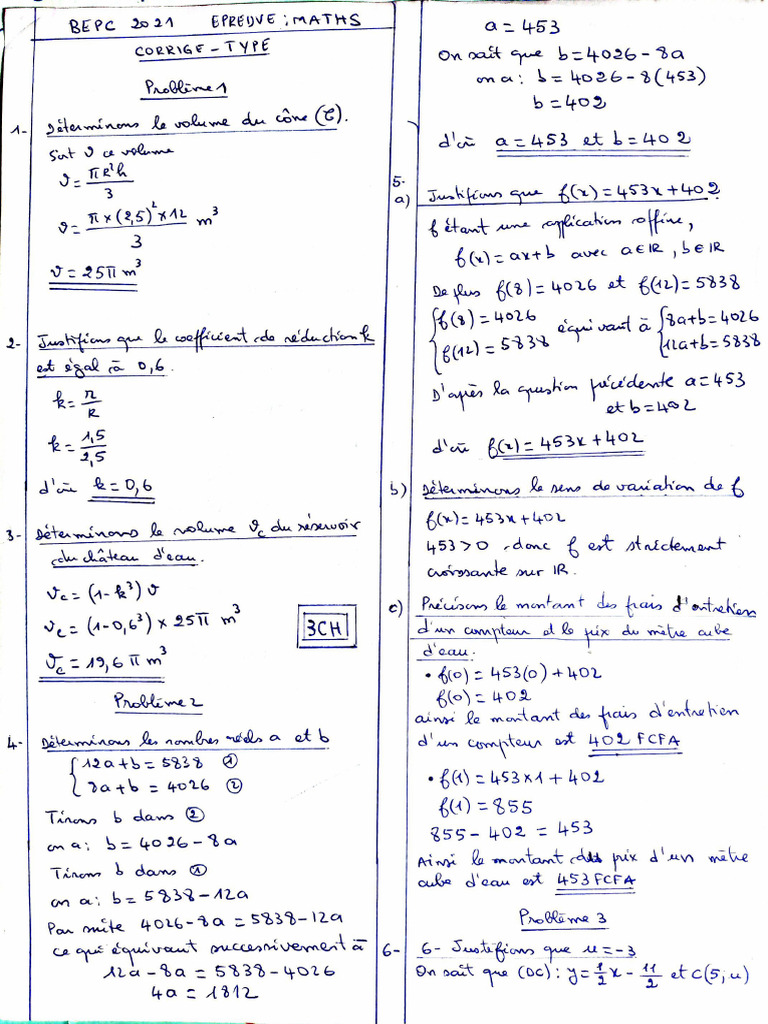 BEPC 2021 EPREUVE : MATHS
CORRIGE - TYPE
Problème 1
1- Déterminons le volume du cône (C).
Soit v ce volume
v = πR²h / 3
v = π × (2,5)² × 12 / 3 m³
v = 25π m³
2- Justifions que le coefficient de réduction k
est égal à 0,6.
k = r / R
k = 1,5 / 2,5
d'où k = 0,6
3- Déterminons le volume Vc du réservoir
du château d'eau.
Vc = (1-k³) v
Vc = (1-0,6³) × 25π m³
Vc = 19,6 π m³
3CH
Problème 2
4- Déterminons les nombres réels a et b
{ 12a+b = 5838 ①
{ 8a+b = 4026 ②
Tirons b dans ②
on a : b = 4026 - 8a
Tirons b dans ①
on a : b = 5838 - 12a
Par suite 4026 - 8a = 5838 - 12a
ce qui équivaut successivement à
12a - 8a = 5838 - 4026
4a = 1812
a = 453
On sait que b = 4026 - 8a
on a : b = 4026 - 8(453)
b = 402
d'où a = 453 et b = 402
5-
a) Justifions que f(x) = 453x + 402
f étant une application affine,
f(x) = ax+b avec a∈IR, b∈IR
De plus f(8) = 4026 et f(12) = 5838
{ f(8) = 4026 équivaut à { 8a+b = 4026
{ f(12) = 5838 { 12a+b = 5838
D'après la question précédente a = 453
et b = 402
d'où f(x) = 453x + 402
b) Déterminons le sens de variation de f
f(x) = 453x + 402
453 > 0 donc f est strictement
croissante sur IR.
c) Précisons le montant des frais d'entretien
d'un compteur et le prix du mètre cube
d'eau.
• f(0) = 453(0) + 402
f(0) = 402
ainsi le montant des frais d'entretien
d'un compteur est 402 FCFA
• f(1) = 453 × 1 + 402
f(1) = 855
855 - 402 = 453
Ainsi le montant du prix d'un mètre
cube d'eau est 453 FCFA
Problème 3
6- 6- Justifions que u = -3
On sait que (DC) : y = 1/2 x - 11/2 et C(5; u)